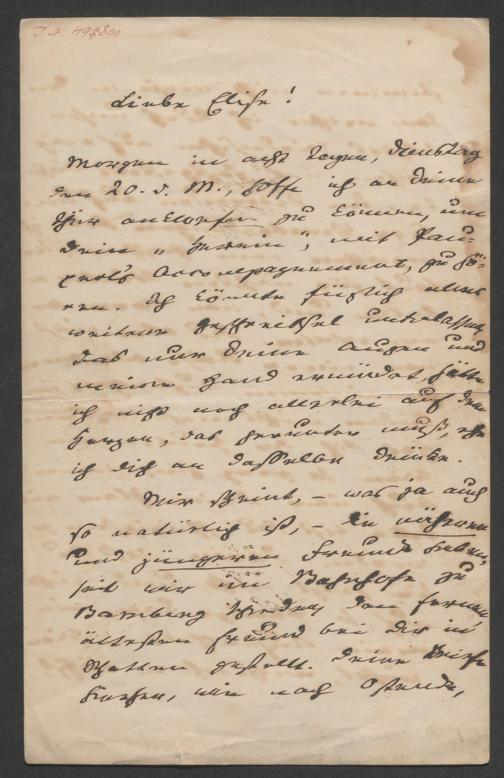 Liebe Elise!
Morgen in acht Tagen, Dienstag
den 20. d. M., hoffe ich an Deine
Thür anklopfen zu können, um
Dein „Herein“, mit
Accompagnement, zu hö-
ren. Ich könnte füglich alles
weitere Geschreibsel unterlassen,
das nur Deine Augen und
meine Hand ermüdet, hätte
ich nicht noch allerlei auf dem
Herzen, das herunter muß, ehe
ich Dich an dasselbe drücke.
Mir scheint, – was ja auch
so natürlich ist, – die näheren
und jüngeren Freunde haben,
seit wir im Bahnhofe zu
Bamberg schieden, den fernen
ältesten Freund bei Dir in
Schatten gestellt. Deine Briefe
hieher, wie nach Ostende,